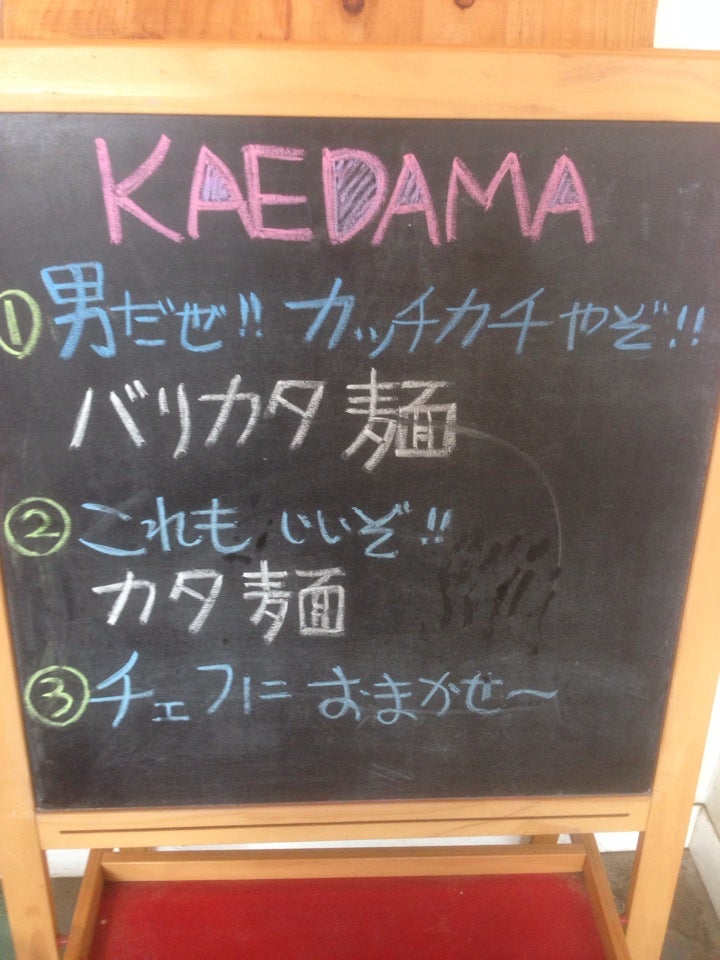 KAEDAMA
①男だぜ!! カッチカチやぞ!!
バリカタ麺
②これも いいぞ!!
カタ麺
③チェフに おまかせ〜